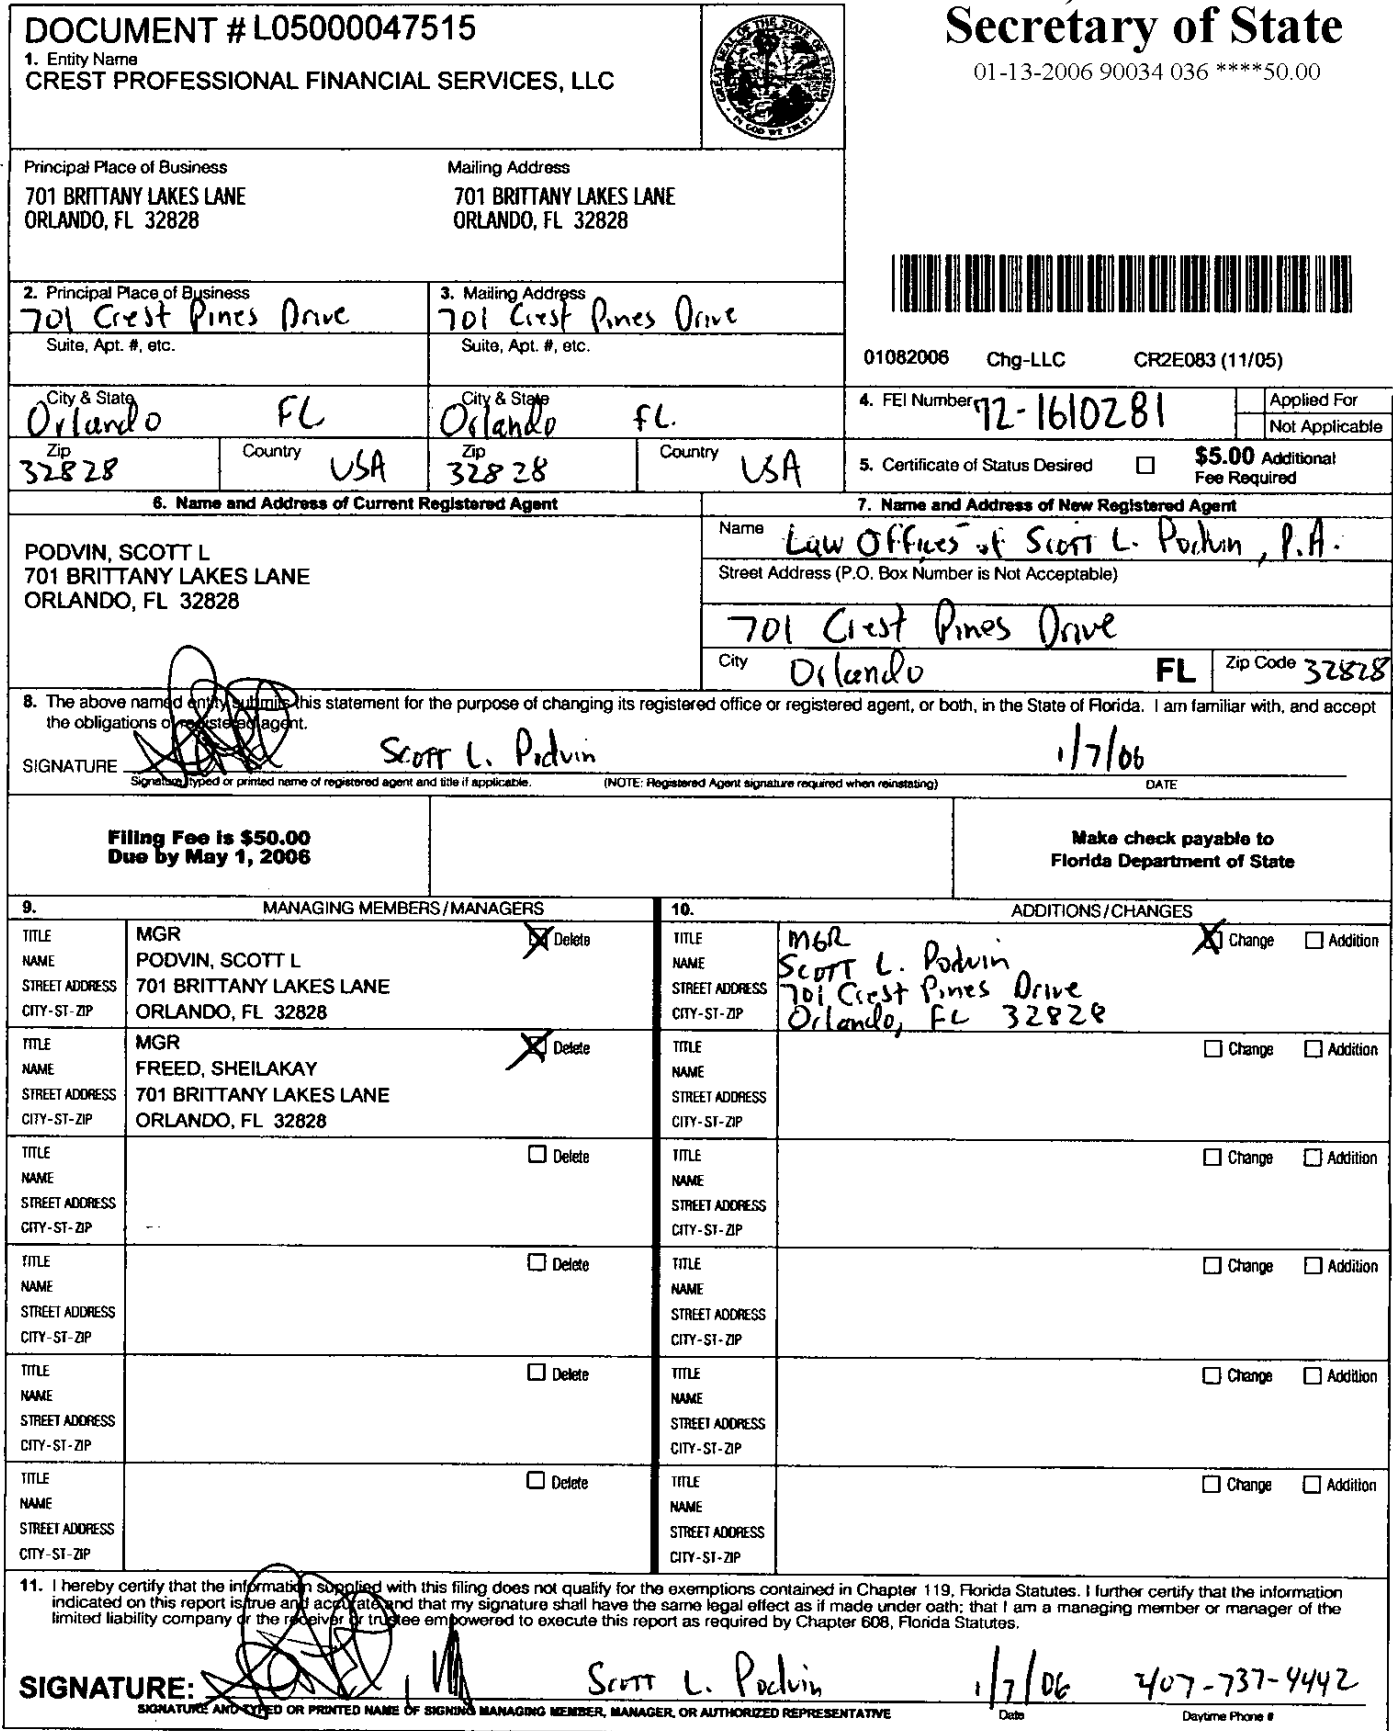 DOCUMENT # L05000047515
1. Entity Name
CREST PROFESSIONAL FINANCIAL SERVICES, LLC
Secretary of State
01-13-2006 90034 036 ****50.00
Principal Place of Business
701 BRITTANY LAKES LANE
ORLANDO, FL 32828
Mailing Address
701 BRITTANY LAKES LANE
ORLANDO, FL 32828
2. Principal Place of Business
701 Crest Pines Drive
Suite, Apt. #, etc.
City & State
Orlando FL
Zip
32828
Country
USA
3. Mailing Address
701 Crest Pines Drive
Suite, Apt. #, etc.
City & State
Orlando FL.
Zip
32828
Country
USA
01082006 Chg-LLC CR2E083 (11/05)
4. FEI Number 72-1610281
Applied For
Not Applicable
5. Certificate of Status Desired
$5.00 Additional
Fee Required
6. Name and Address of Current Registered Agent
PODVIN, SCOTT L
701 BRITTANY LAKES LANE
ORLANDO, FL 32828
7. Name and Address of New Registered Agent
Name Law Offices of Scott L. Podvin, P.A.
Street Address (P.O. Box Number is Not Acceptable)
701 Crest Pines Drive
City Orlando FL Zip Code 32828
8. The above named entity submits this statement for the purpose of changing its registered office or registered agent, or both, in the State of Florida. I am familiar with, and accept
the obligations of registered agent.
SIGNATURE Scott L. Podvin 1/7/06
Signature, typed or printed name of registered agent and title if applicable. (NOTE: Registered Agent signature required when reinstating) DATE
Filing Fee is $50.00
Due by May 1, 2006
Make check payable to
Florida Department of State
9. MANAGING MEMBERS/MANAGERS
TITLE MGR Delete
NAME PODVIN, SCOTT L
STREET ADDRESS 701 BRITTANY LAKES LANE
CITY-ST-ZIP ORLANDO, FL 32828
TITLE MGR Delete
NAME FREED, SHEILAKAY
STREET ADDRESS 701 BRITTANY LAKES LANE
CITY-ST-ZIP ORLANDO, FL 32828
TITLE Delete
NAME
STREET ADDRESS
CITY-ST-ZIP
TITLE Delete
NAME
STREET ADDRESS
CITY-ST-ZIP
TITLE Delete
NAME
STREET ADDRESS
CITY-ST-ZIP
TITLE Delete
NAME
STREET ADDRESS
CITY-ST-ZIP
10. ADDITIONS/CHANGES
TITLE MGR Change Addition
NAME Scott L. Podvin
STREET ADDRESS 701 Crest Pines Drive
CITY-ST-ZIP Orlando, FL 32828
TITLE Change Addition
NAME
STREET ADDRESS
CITY-ST-ZIP
TITLE Change Addition
NAME
STREET ADDRESS
CITY-ST-ZIP
TITLE Change Addition
NAME
STREET ADDRESS
CITY-ST-ZIP
TITLE Change Addition
NAME
STREET ADDRESS
CITY-ST-ZIP
TITLE Change Addition
NAME
STREET ADDRESS
CITY-ST-ZIP
11. I hereby certify that the information supplied with this filing does not qualify for the exemptions contained in Chapter 119, Florida Statutes. I further certify that the information
indicated on this report is true and accurate and that my signature shall have the same legal effect as if made under oath; that I am a managing member or manager of the
limited liability company or the receiver or trustee empowered to execute this report as required by Chapter 608, Florida Statutes.
SIGNATURE: Scott L. Podvin 1/7/06 407-737-4442
SIGNATURE AND TYPED OR PRINTED NAME OF SIGNING MANAGING MEMBER, MANAGER, OR AUTHORIZED REPRESENTATIVE Date Daytime Phone #